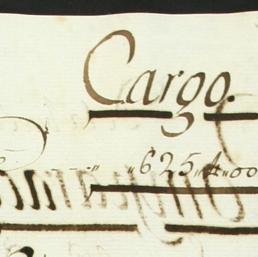 Cargo.
625,,4,,00